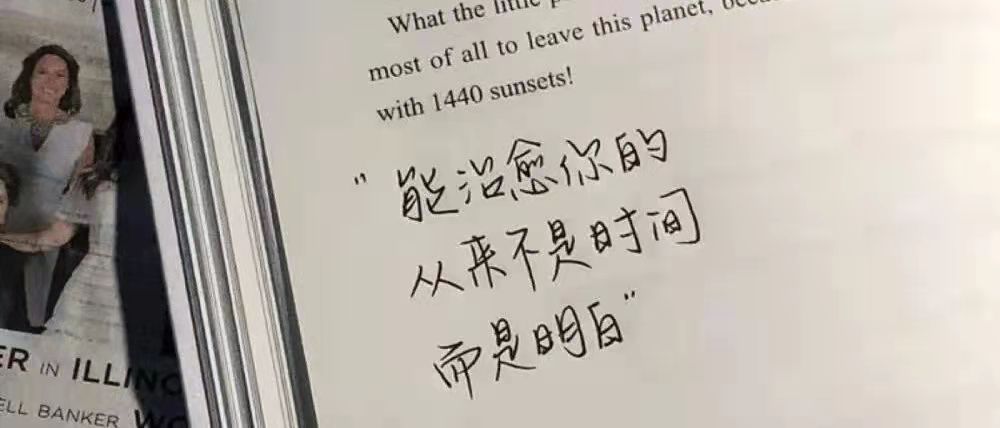 What the little
most of all to leave this planet,
with 1440 sunsets!
"能治愈你的
从来不是时间
而是明白"
IN ILLINO
BANKER